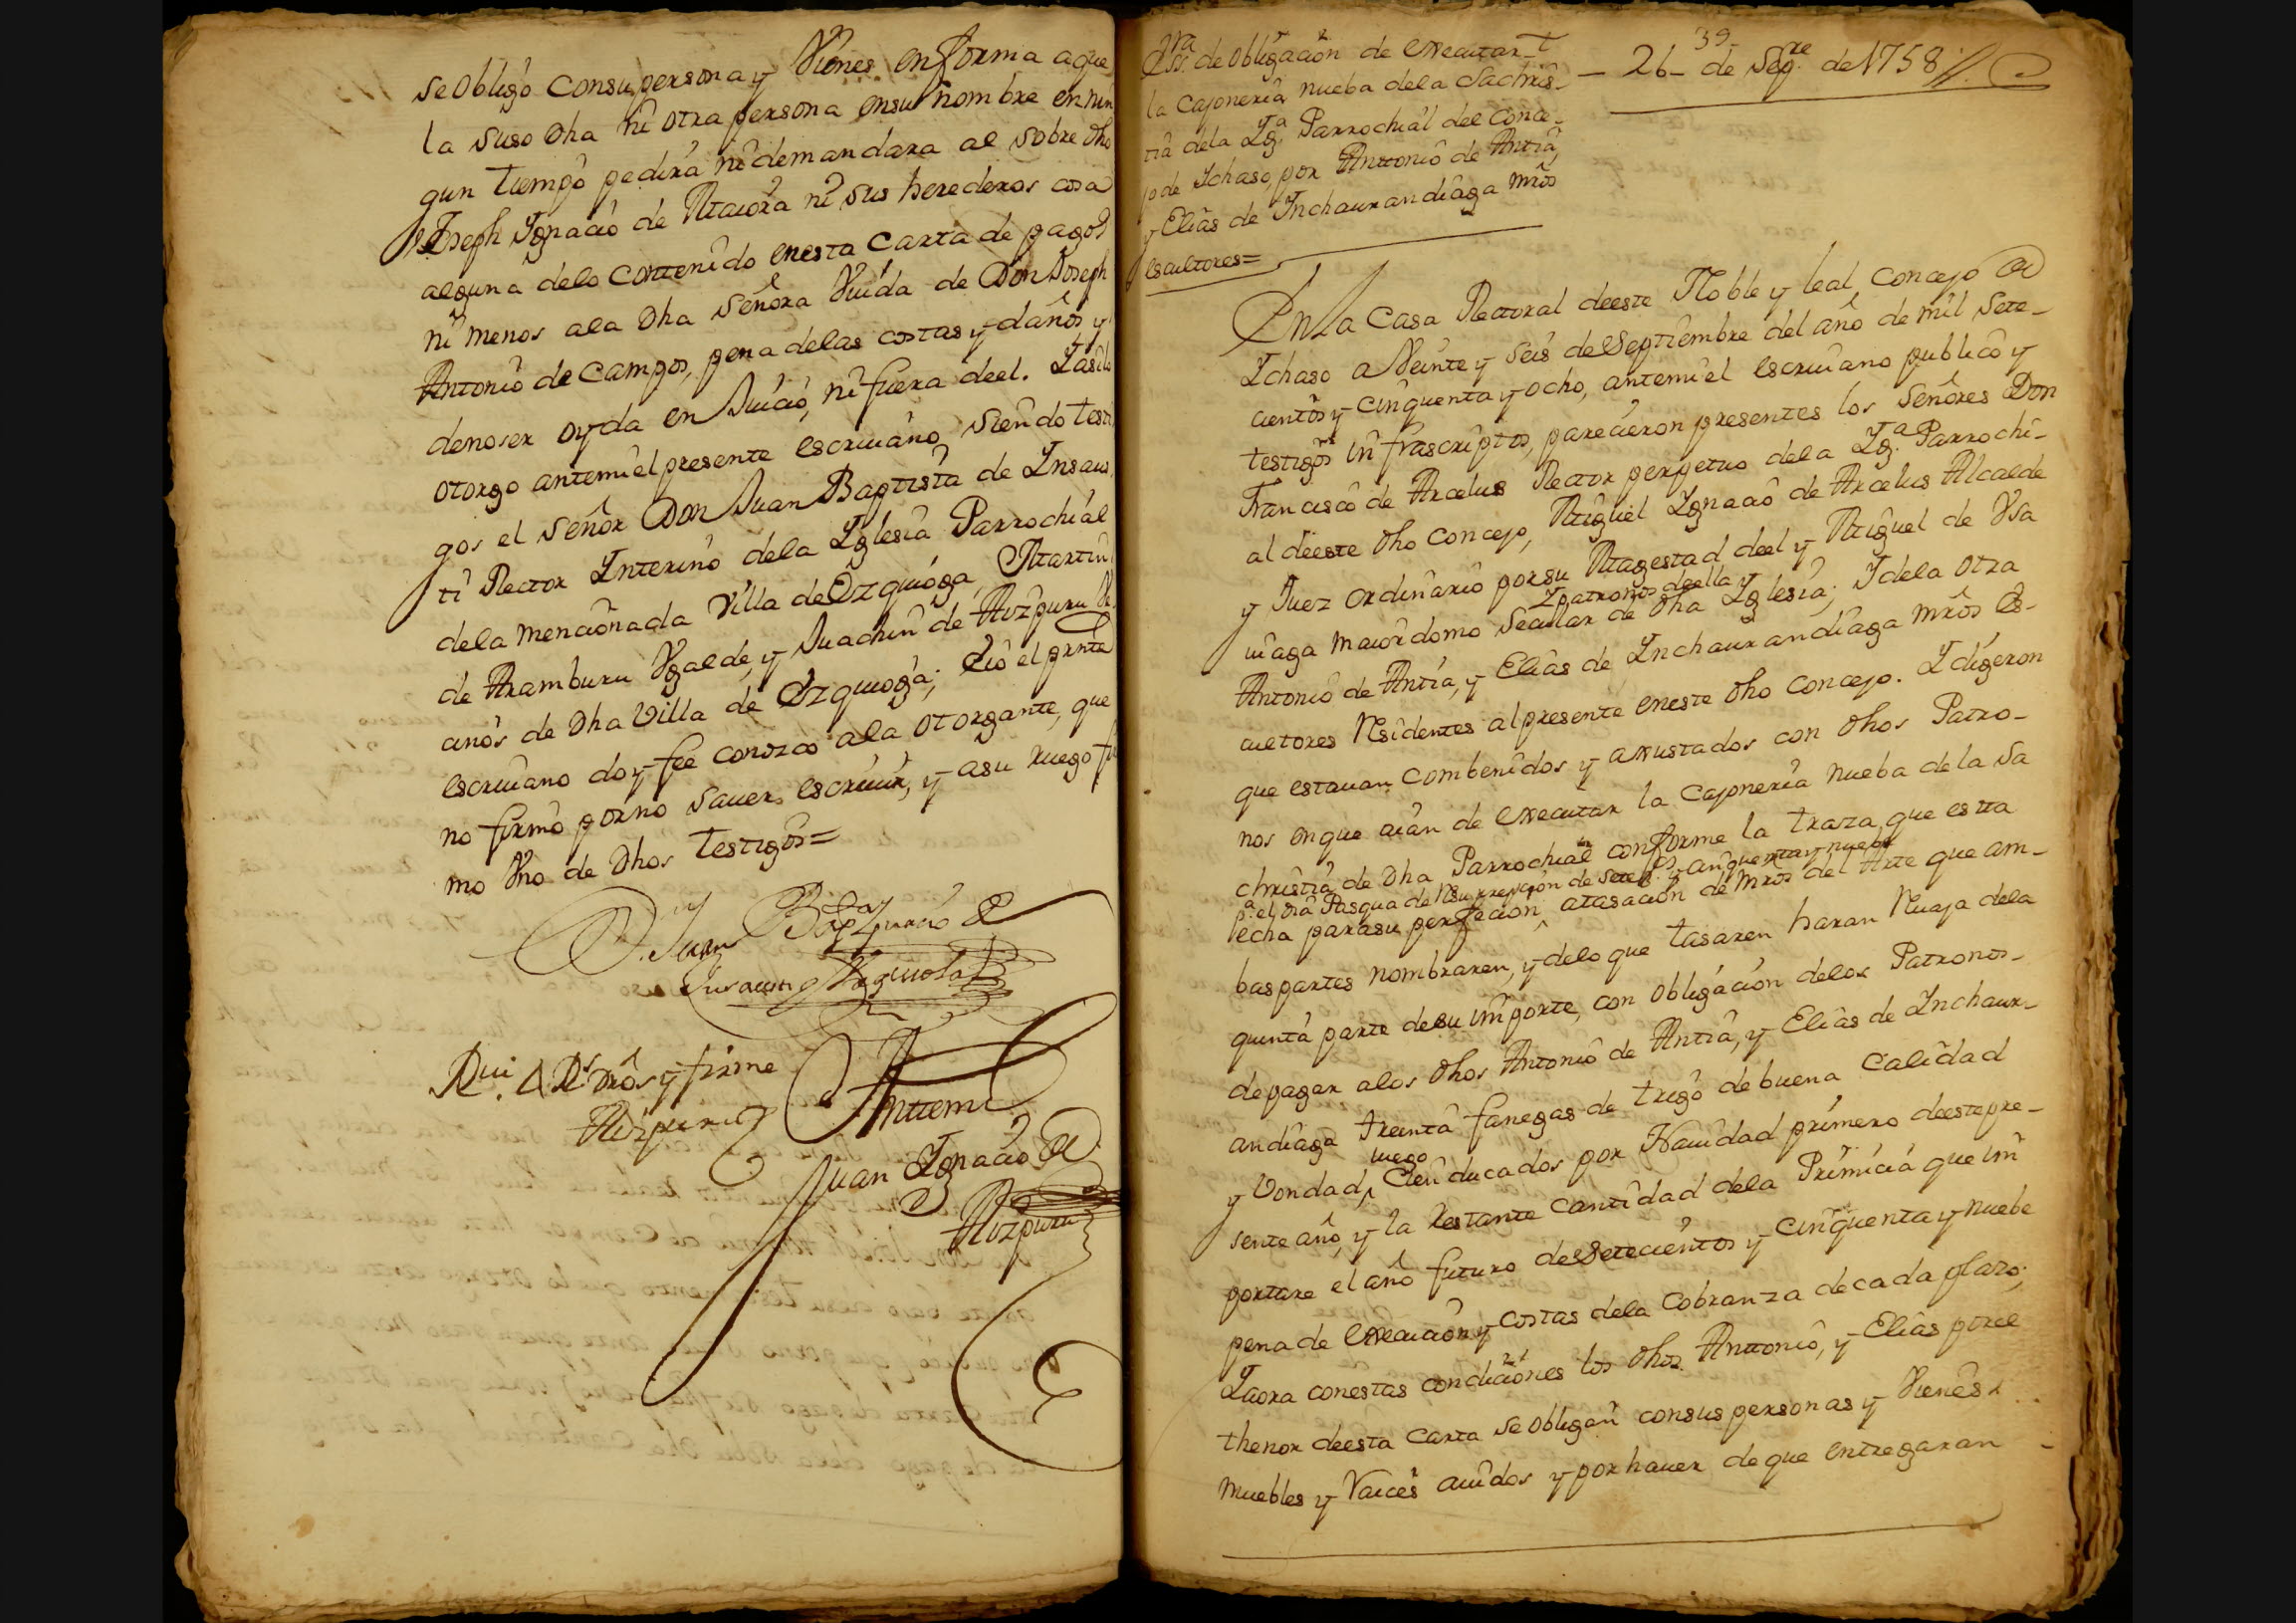 se obligò con su persona y Vienes en forma a que
la suso dha ni otra persona en su nombre en nin
gun tiempo pedirà ni demandara al sobre dho
Joseph Ygnacio de Maiora ni sus herederos cosa
alguna delo contenido en esta Carta de pago
ni menos ala dha Señora Viuda de Don Joseph
Antonio de Campos, pena delas costas y daños y
de no ser oyda en Juicio, ni fuera deel. Y asi lo
otorgo antemi el presente escriuano siendo testi
gos el Señor Don Juan Baptista de Insaus
ti Rector Interino dela Yglesia Parrochial
dela mencionada Villa de Ezquioga, Martin
de Aramburu Vgalde, y Juachin de Aizpuru Ve
cinos de dha Villa de Ezquioga; E io el prnte
escriuano doy fee conozco ala otorgante, que
no firmò por no sauer escriuir, y asu ruego fir
mo Vno de dhos testigos=
D. Juan Bapta
Antemi
Juan Ygnacio de
Aizpuru
Aizpuru
Essra de obligacion de executar
la Cajoneria nueba dela Sachris-
tia dela Ygª Parrochial del Conce-
jo de Ichaso, por Anttonio de Antia,
y Elias de Inchaurandiaga mros
escultores=
39
- 26 - de Sepre de 1758 //.
En la Casa Rectoral deeste Noble y leal Concejo de
Ichaso a Veinte y seis de Septiembre del año de mil sete-
cientos y cinquenta y ocho, antemi el escriuano publico y
testigos infrascriptos, parecieron presentes los Señores Don
Francisco de Arcelus Rector perpetuo dela Ygª Parrochi-
al deeste dho Concejo, Miguel Ygnacio de Arcelus Alcalde
y Juez ordinario por su Magestad deel y Miguel de Vsa
Y patronos deella
uiaga maiordomo Secular de dha Yglesia; Y dela otra
Antonio de Antia, y Elias de Inchaurandiaga mros Es-
cultores Residentes al presente en este dho Concejo. Y digeron
que estauan combenidos y axustados con dhos Patro-
nos en que aian de executar la cajoneria nueba dela Sa
christia de dha Parrochial conforme la traza que esta
pª el dia Pasqua de Resurreccion de setectos y cinquenta y nuebe
hecha para su perfecion, atasacion de mros del Arte que am-
bas partes nombraren, y delo que tasaren haran Reuaja dela
quinta parte de su importe, con obligacion delos Patronos
de pagar alos dhos Antonio de Antia, y Elias de Inchaur-
andiaga treinta fanegas de trigo de buena Calidad
luego
y Vondad, Cien ducados por Nauidad primero deeste pre-
sente año, y la restante cantidad dela Primicia que im
portare el año futuro de setecientos y cinquenta y nuebe
pena de execucion y costas dela cobranza de cada plazo;
Y aora con estas condiciones los dhos Anttonio, y Elias por el
thenor deesta Carta se obligan con sus personas y Vienes
muebles y Raices auidos y por hauer de que entregaran